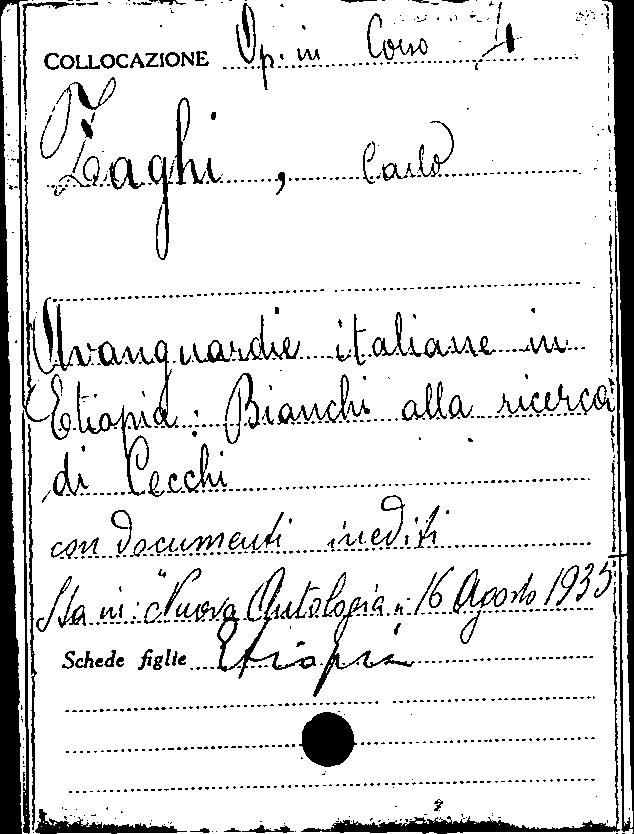 COLLOCAZIONE Op. in Corso
Zaghi, Carlo
Avanguardie italiane in
Etiopia: Bianchi alla ricerca
di Cecchi
con documenti inediti
Sta in: "Nuova Antologia" 16 Agosto 1935
Schede figlie Etiopia